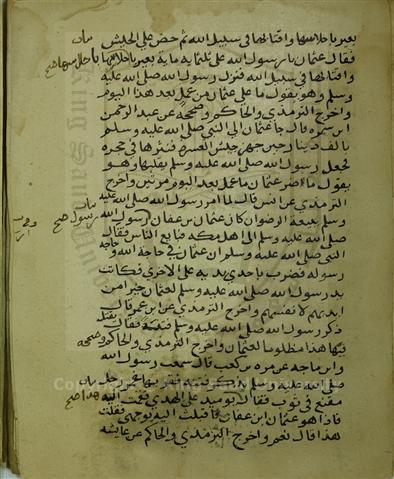 بعير باحلاسها واقتابها في سبيل الله ثم حض علي الجيش
فقال عثمان يا رسول الله علي ثلثماية بعير باحلاسها
واقتابها في سبيل الله فنزل رسول الله صلي الله عليه
وسلم وهو يقول ما علي عثمان من عمل بعد هذا اليوم
واخرج الترمذي والحاكم وصححه عن عبد الرحمن
ابن سمره قال جا عثمان الي النبي صلي الله عليه وسلم
بالف دينار حين جهز جيش العسرة فنثرها في حجره
فجعل رسول الله صلي الله عليه وسلم يقلبها وهو
يقول ما ضر عثمان ما عمل بعد اليوم مرتين واخرج
الترمذي عن انس قال لما امر رسول الله صلي الله عليه
وسلم ببيعة الرضوان كان عثمان بن عفان رسول الله
صلي الله عليه وسلم الي اهل مكه فبايع الناس فقال
النبي صلي الله عليه وسلم ان عثمان في حاجة الله وحاجة
رسوله فضرب باحدي يديه علي الاخري فكانت
يد رسول الله صلي الله عليه وسلم لعثمان خير من
ايديهم لانفسهم واخرج الترمذي عن ابن عمر قال
ذكر رسول الله صلي الله عليه وسلم فتنة فقال يقتل
فيها هذا مظلوما لعثمان واخرج الترمذي والحاكم وصححه
وابن ماجه عن مره بن كعب قال سمعت رسول الله
صلي الله عليه وسلم يذكر فتنة فقربها فمر رجل
مقنع في ثوب فقال هذا يوميذ علي الهدي فقمت اليه
فاذا هو عثمان ابن عفان فاقبلت اليه بوجهي فقلت
هذا قال نعم واخرج الترمذي والحاكم عن عايشه